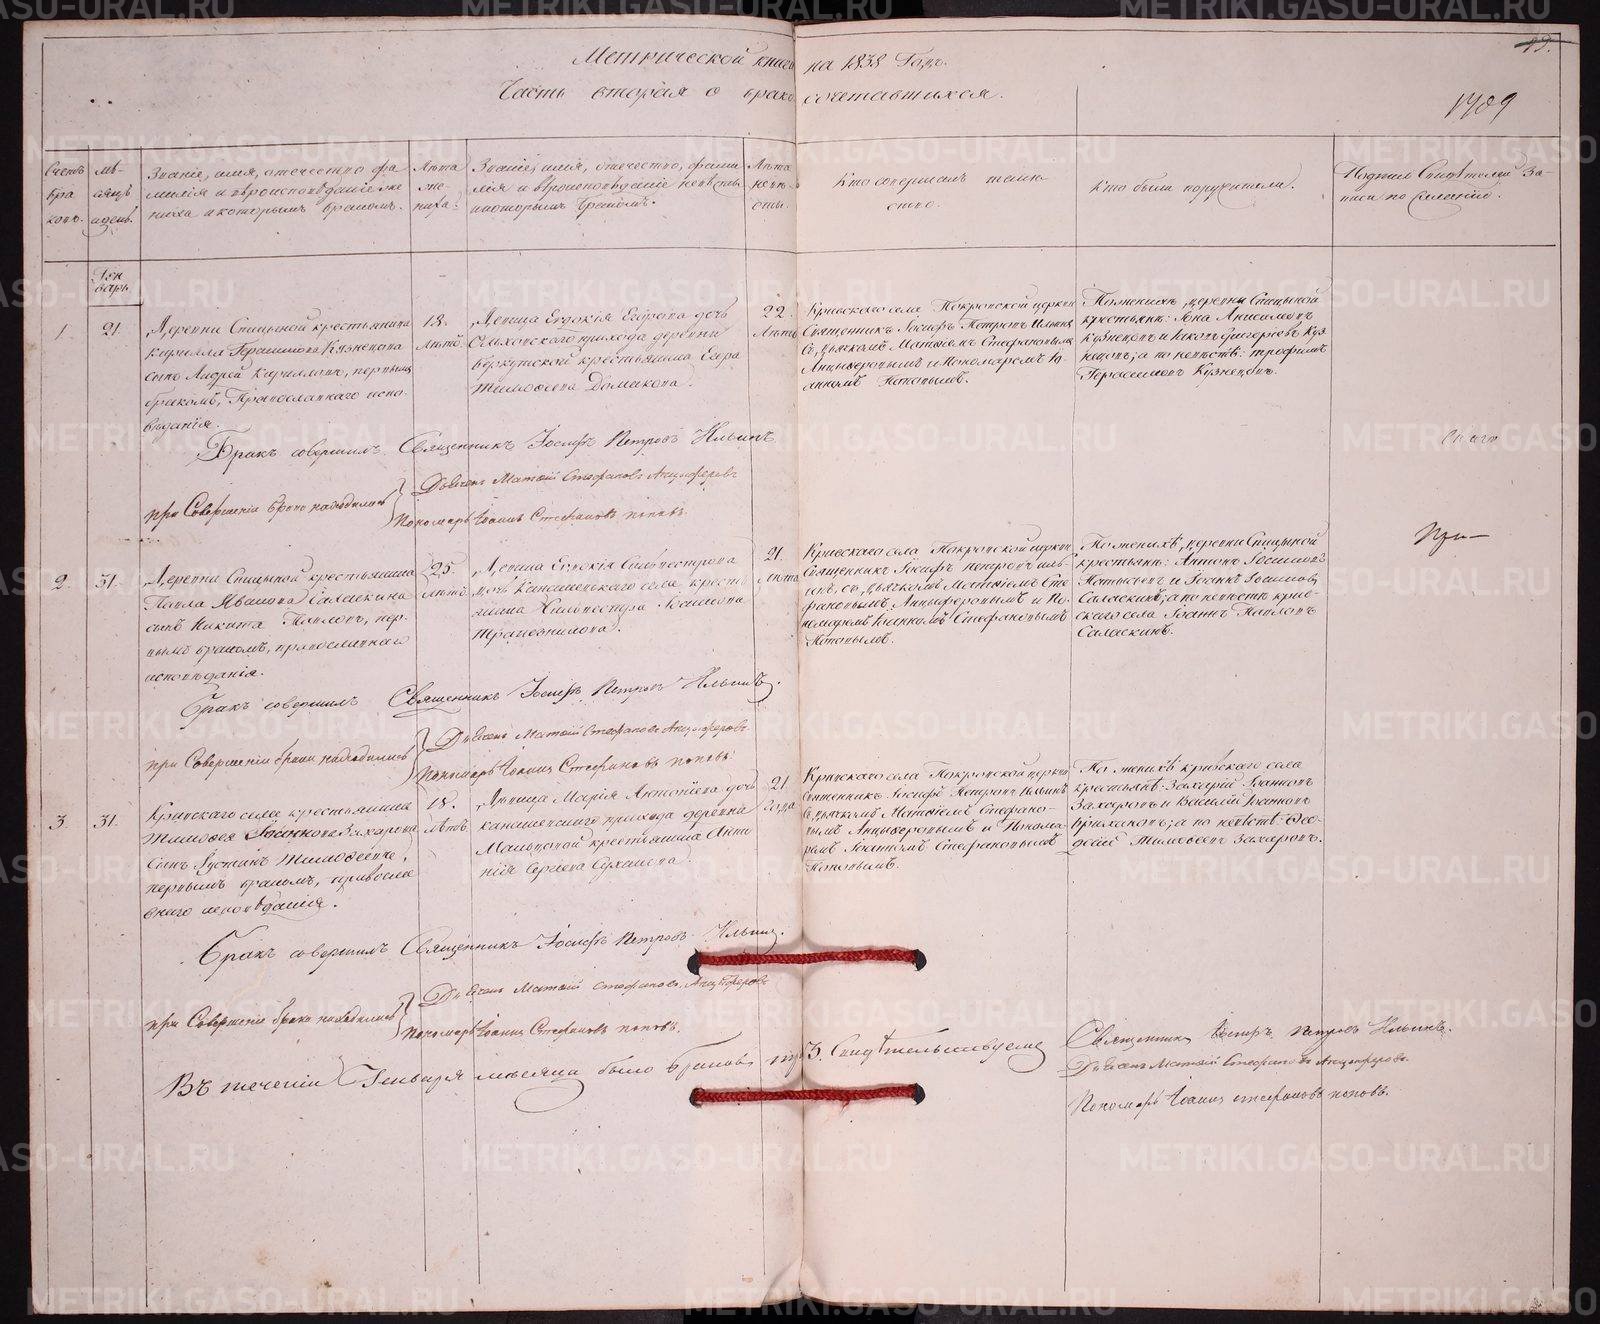 Метрической книги на 1838 Годъ.
Часть вторая о бракосочетавшихся.
19.
1709
Счетъ бра ковъ.
мѣ- сяцъ и день.
Званіе, имя, отечество, фа
милія и вѣроисповѣданіе же
ниха и которымъ бракомъ.
Лѣта же- ниха.
Званіе, имя, отечество, фами
лія и вѣроисповѣданіе невѣсты
и которымъ бракомъ.
Лѣта невѣ сты.
Кто совершалъ таин
ство.
Кто были поручители.
Подпись Свидѣтелей за-
писи по желанію.
Ген варь
1.
21.
Деревни Спицыной крестьянина
Кирилла Герасимова Кузнецова
сынъ Андрей Кирилловъ, первымъ
бракомъ, Православнаго испо-
вѣданія.
18. лѣтъ
Девица Евдокія Егорова дочь
прихода деревни
Беркутской крестьянина Егора
Тимофеева
22. лѣты
Кривскаго села Покровской церкви
Священникъ Іосифъ Петровъ Ильинъ
съ, дьячкомъ Матвіемъ Стефановымъ
Анциферовымъ и Пономаремъ Іо-
анномъ Поповымъ.
По женихѣ, деревни Спицыной
крестьяне: Іона Анисимовъ
Кузнецовъ и Григорьевъ Куз
нецовъ; а по невѣстѣ: трофимъ
Герасимовъ Кузнецовъ.
Бракъ совершилъ Священникъ Іосифъ Петровъ Ильинъ
при Совершеніи брака находились
Дьячекъ Матвій Стефановъ Анциферовъ
Пономарь Іоаннъ Стефановъ поповъ.
2.
31.
Деревни Спицыной крестьянина
Павла Иванова Саласкина
сынъ Никита Павловъ, пер-
вымъ бракомъ, православнаго
исповѣданія.
25. лѣтъ
Девица Евдокія Силвестрова
дочь Канашевскаго села кресть
янина Силвестра
Трапезникова.
21. лѣта
Кривскаго села Покровской церкви
Священникъ Іосифъ петровъ иль-
инъ, съ, дьячкомъ Матвіемъ Сте
фановымъ Анциферовымъ и По
номаремъ Іоанномъ Стефановымъ
Поповымъ.
По женихѣ, деревни Спицыной
крестьяне: Антонъ
и Іоаннъ
Саласкинъ; а по невѣстѣ крив-
скаго села Іоаннъ Павловъ
Саласкинъ.
Бракъ совершилъ Священникъ Іосифъ Петровъ Ильинъ.
при Совершеніи брака находились
Дьячекъ Матвій Стефановъ Анциферовъ
Пономарь Іоаннъ Стефановъ поповъ.
3.
31.
Кривскаго села крестьянина
Тимофея Захарова
сынъ Іустинъ Тимофеевъ,
первымъ бракомъ, правосла
внаго исповѣданія.
18. лѣтъ
Девица Марія Антоніева дочь
канашевскаго прихода деревни
крестьянина Анто
нія Сергеева Суханова.
21 года
Кривскаго села Покровской церкви
Священникъ Іосифъ Петровъ Ильинъ
съ, дьячкомъ Матвіемъ Стефано-
вымъ Анциферовымъ и Понома-
ремъ Іоанномъ Стефановымъ
Поповымъ.
По женихѣ кривскаго села
крестьяне: Захарій Іоанновъ
Захаровъ и Василій Іоанновъ
а по невѣстѣ Ѳео-
Тимофеевъ Захаровъ.
Бракъ совершилъ Священникъ Іосифъ Петровъ Ильинъ.
при Совершеніи брака находились
Дьячекъ Матвій Стефановъ, Анциферовъ
Пономарь Іоаннъ Стефановъ поповъ.
В теченіи Генваря месяца было браковъ три 3. Свидѣтельствуемъ
Священникъ Іосифъ Петровъ Ильинъ.
Дьячекъ Матвій Стефановъ Анциферовъ.
Пономарь Іоаннъ стефановъ поповъ.
METRIKI.GASO-URAL.RU